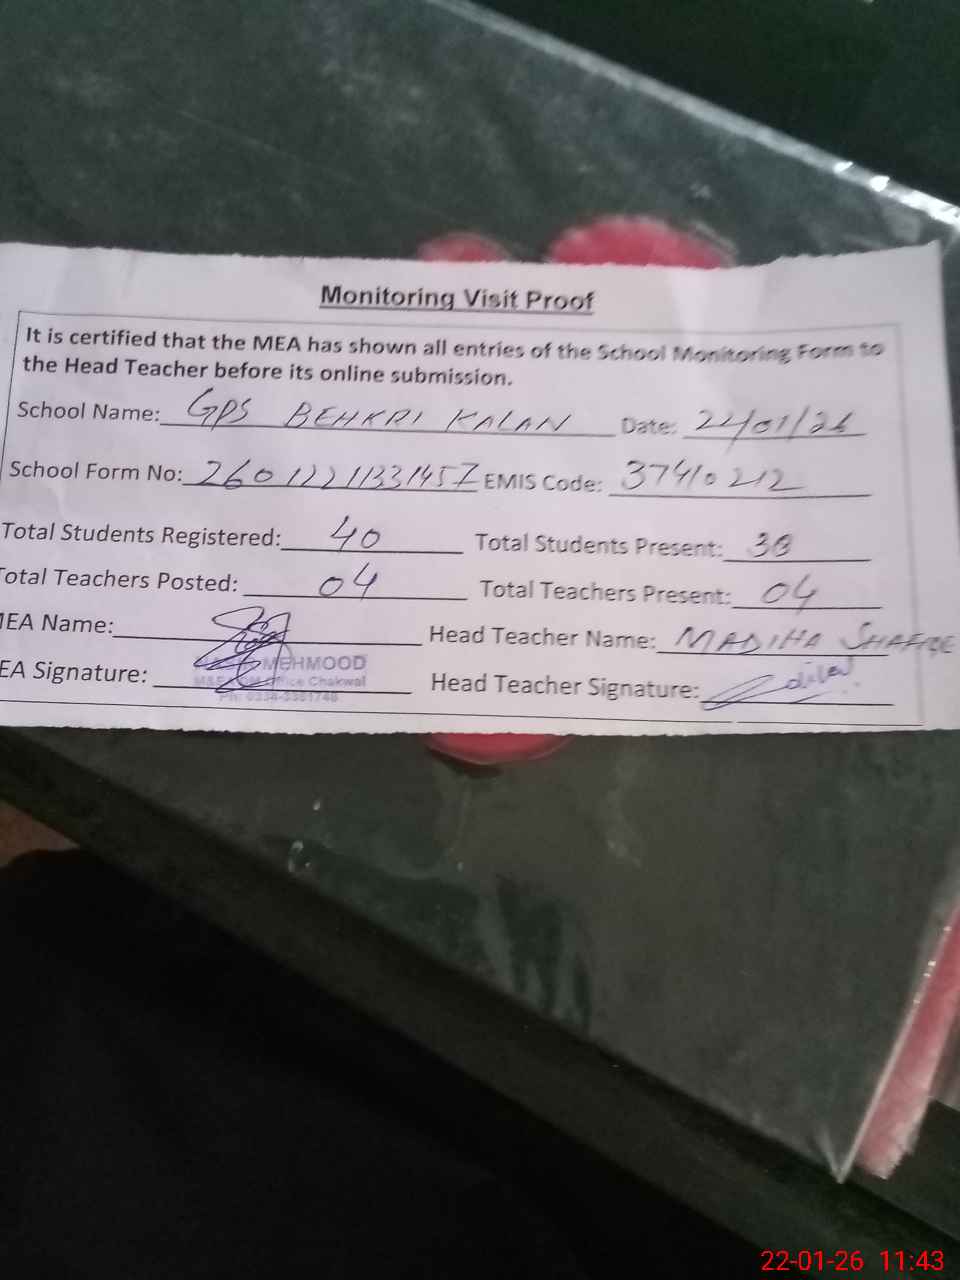 Monitoring Visit Proof
It is certified that the MEA has shown all entries of the School Monitoring Form to
the Head Teacher before its online submission.
School Name: GPS BEHKRI KALAN Date: 22/01/26
School Form No: 26012211331457 EMIS Code: 37410212
Total Students Registered: 40 Total Students Present: 38
Total Teachers Posted: 04 Total Teachers Present: 04
MEA Name: Head Teacher Name: MADIHA SHAFIQE
MEHMOOD
EA Signature: Head Teacher Signature:
Office Chakwal
22-01-26 11:43